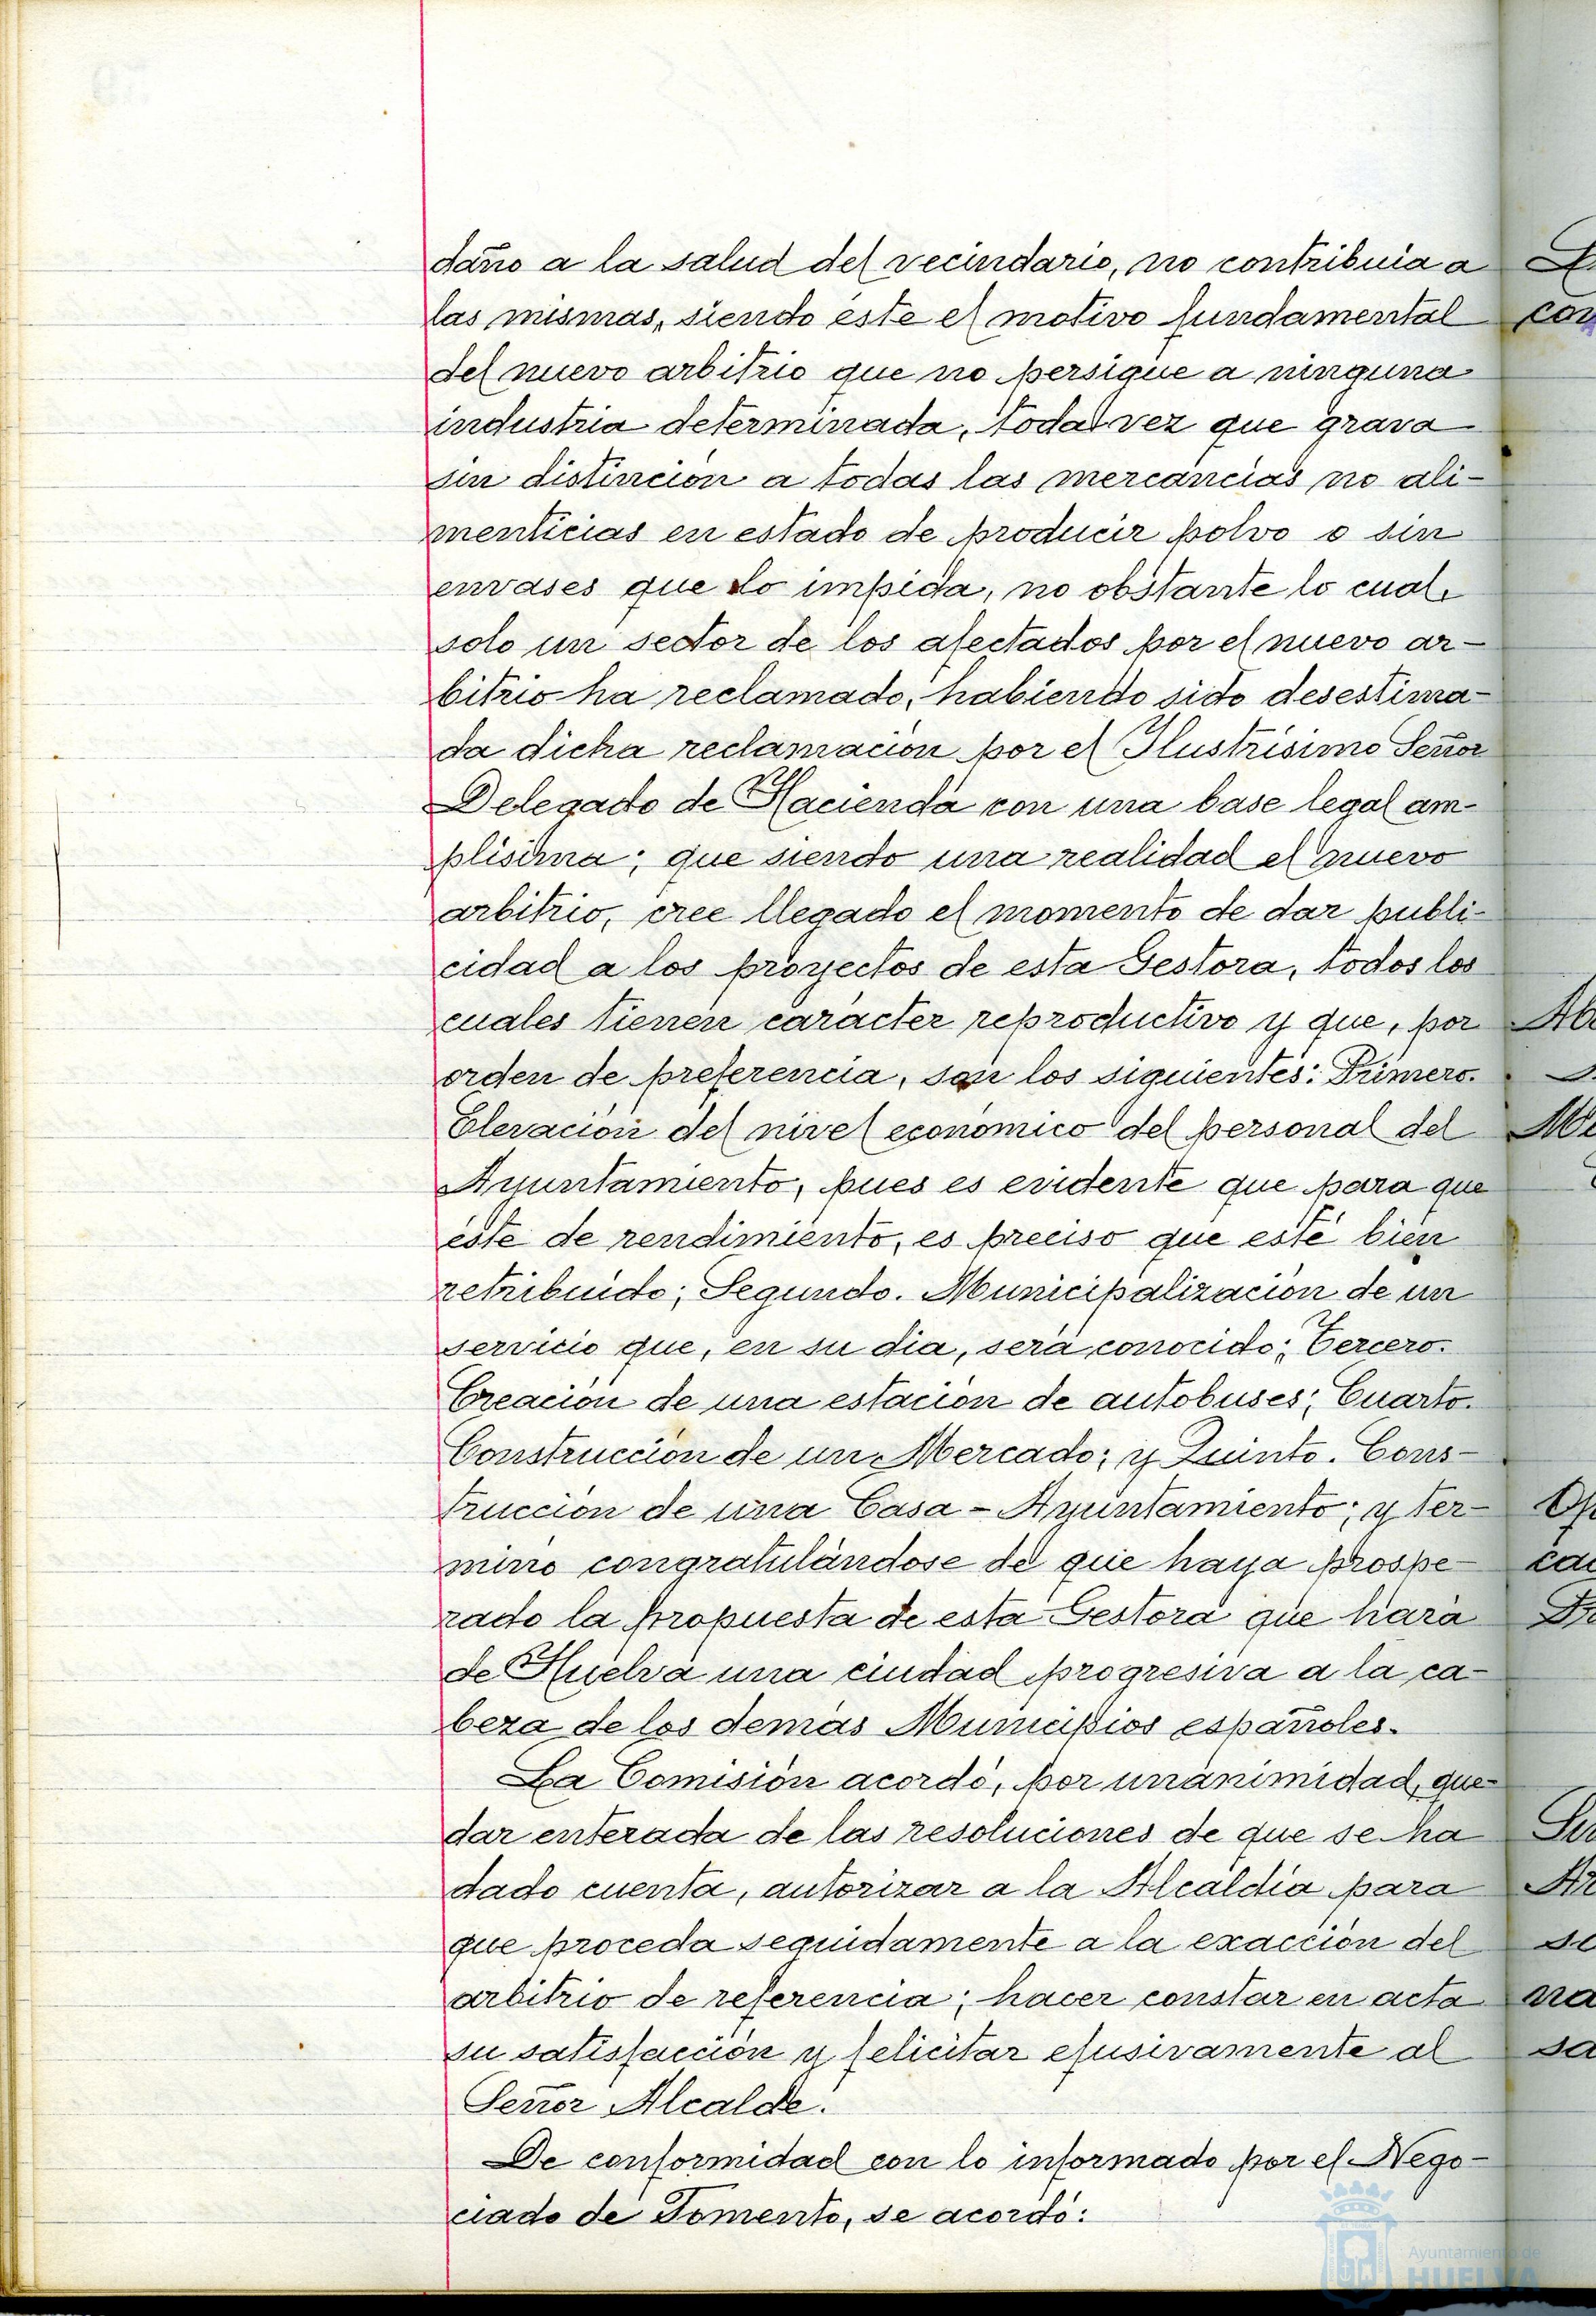 daño a la salud del vecindario, no contribuia a
las mismas, siendo éste el motivo fundamental
del nuevo arbitrio que no persigue a ninguna
industria determinada, toda vez que grava
sin distinción a todas las mercancías no ali-
menticias en estado de producir polvo o sin
envases que lo impida, no obstante lo cual
solo un sector de los afectados por el nuevo ar-
bitrio ha reclamado, habiendo sido desestima-
da dicha reclamación por el Ilustrísimo Señor
Delegado de Hacienda con una base legal am-
plísima; que siendo una realidad el nuevo
arbitrio, cree llegado el momento de dar publi-
cidad a los proyectos de esta Gestora, todos los
cuales tienen carácter reproductivo y que, por
orden de preferencia, son los siguientes: Primero.
Elevación del nivel económico del personal del
Ayuntamiento, pues es evidente que para que
éste de rendimiento, es preciso que esté bien
retribuido; Segundo. Municipalización de un
servicio que, en su dia, será conocido; Tercero.
Creación de una estación de autobuses; Cuarto.
Construcción de un Mercado; y Quinto. Cons-
trucción de una Casa-Ayuntamiento; y ter-
mino congratulándose de que haya prospe-
rado la propuesta de esta Gestora que hará
de Huelva una ciudad progresiva a la ca-
beza de los demás Municipios españoles.
La Comisión acordó, por unanimidad, que-
dar enterada de las resoluciones de que se ha
dado cuenta, autorizar a la Alcaldía para
que proceda seguidamente a la exacción del
arbitrio de referencia; hacer constar en acta
su satisfacción y felicitar efusivamente al
Señor Alcalde.
De conformidad con lo informado por el Nego-
ciado de Fomento, se acordó:
Ayuntamiento de
HUELVA